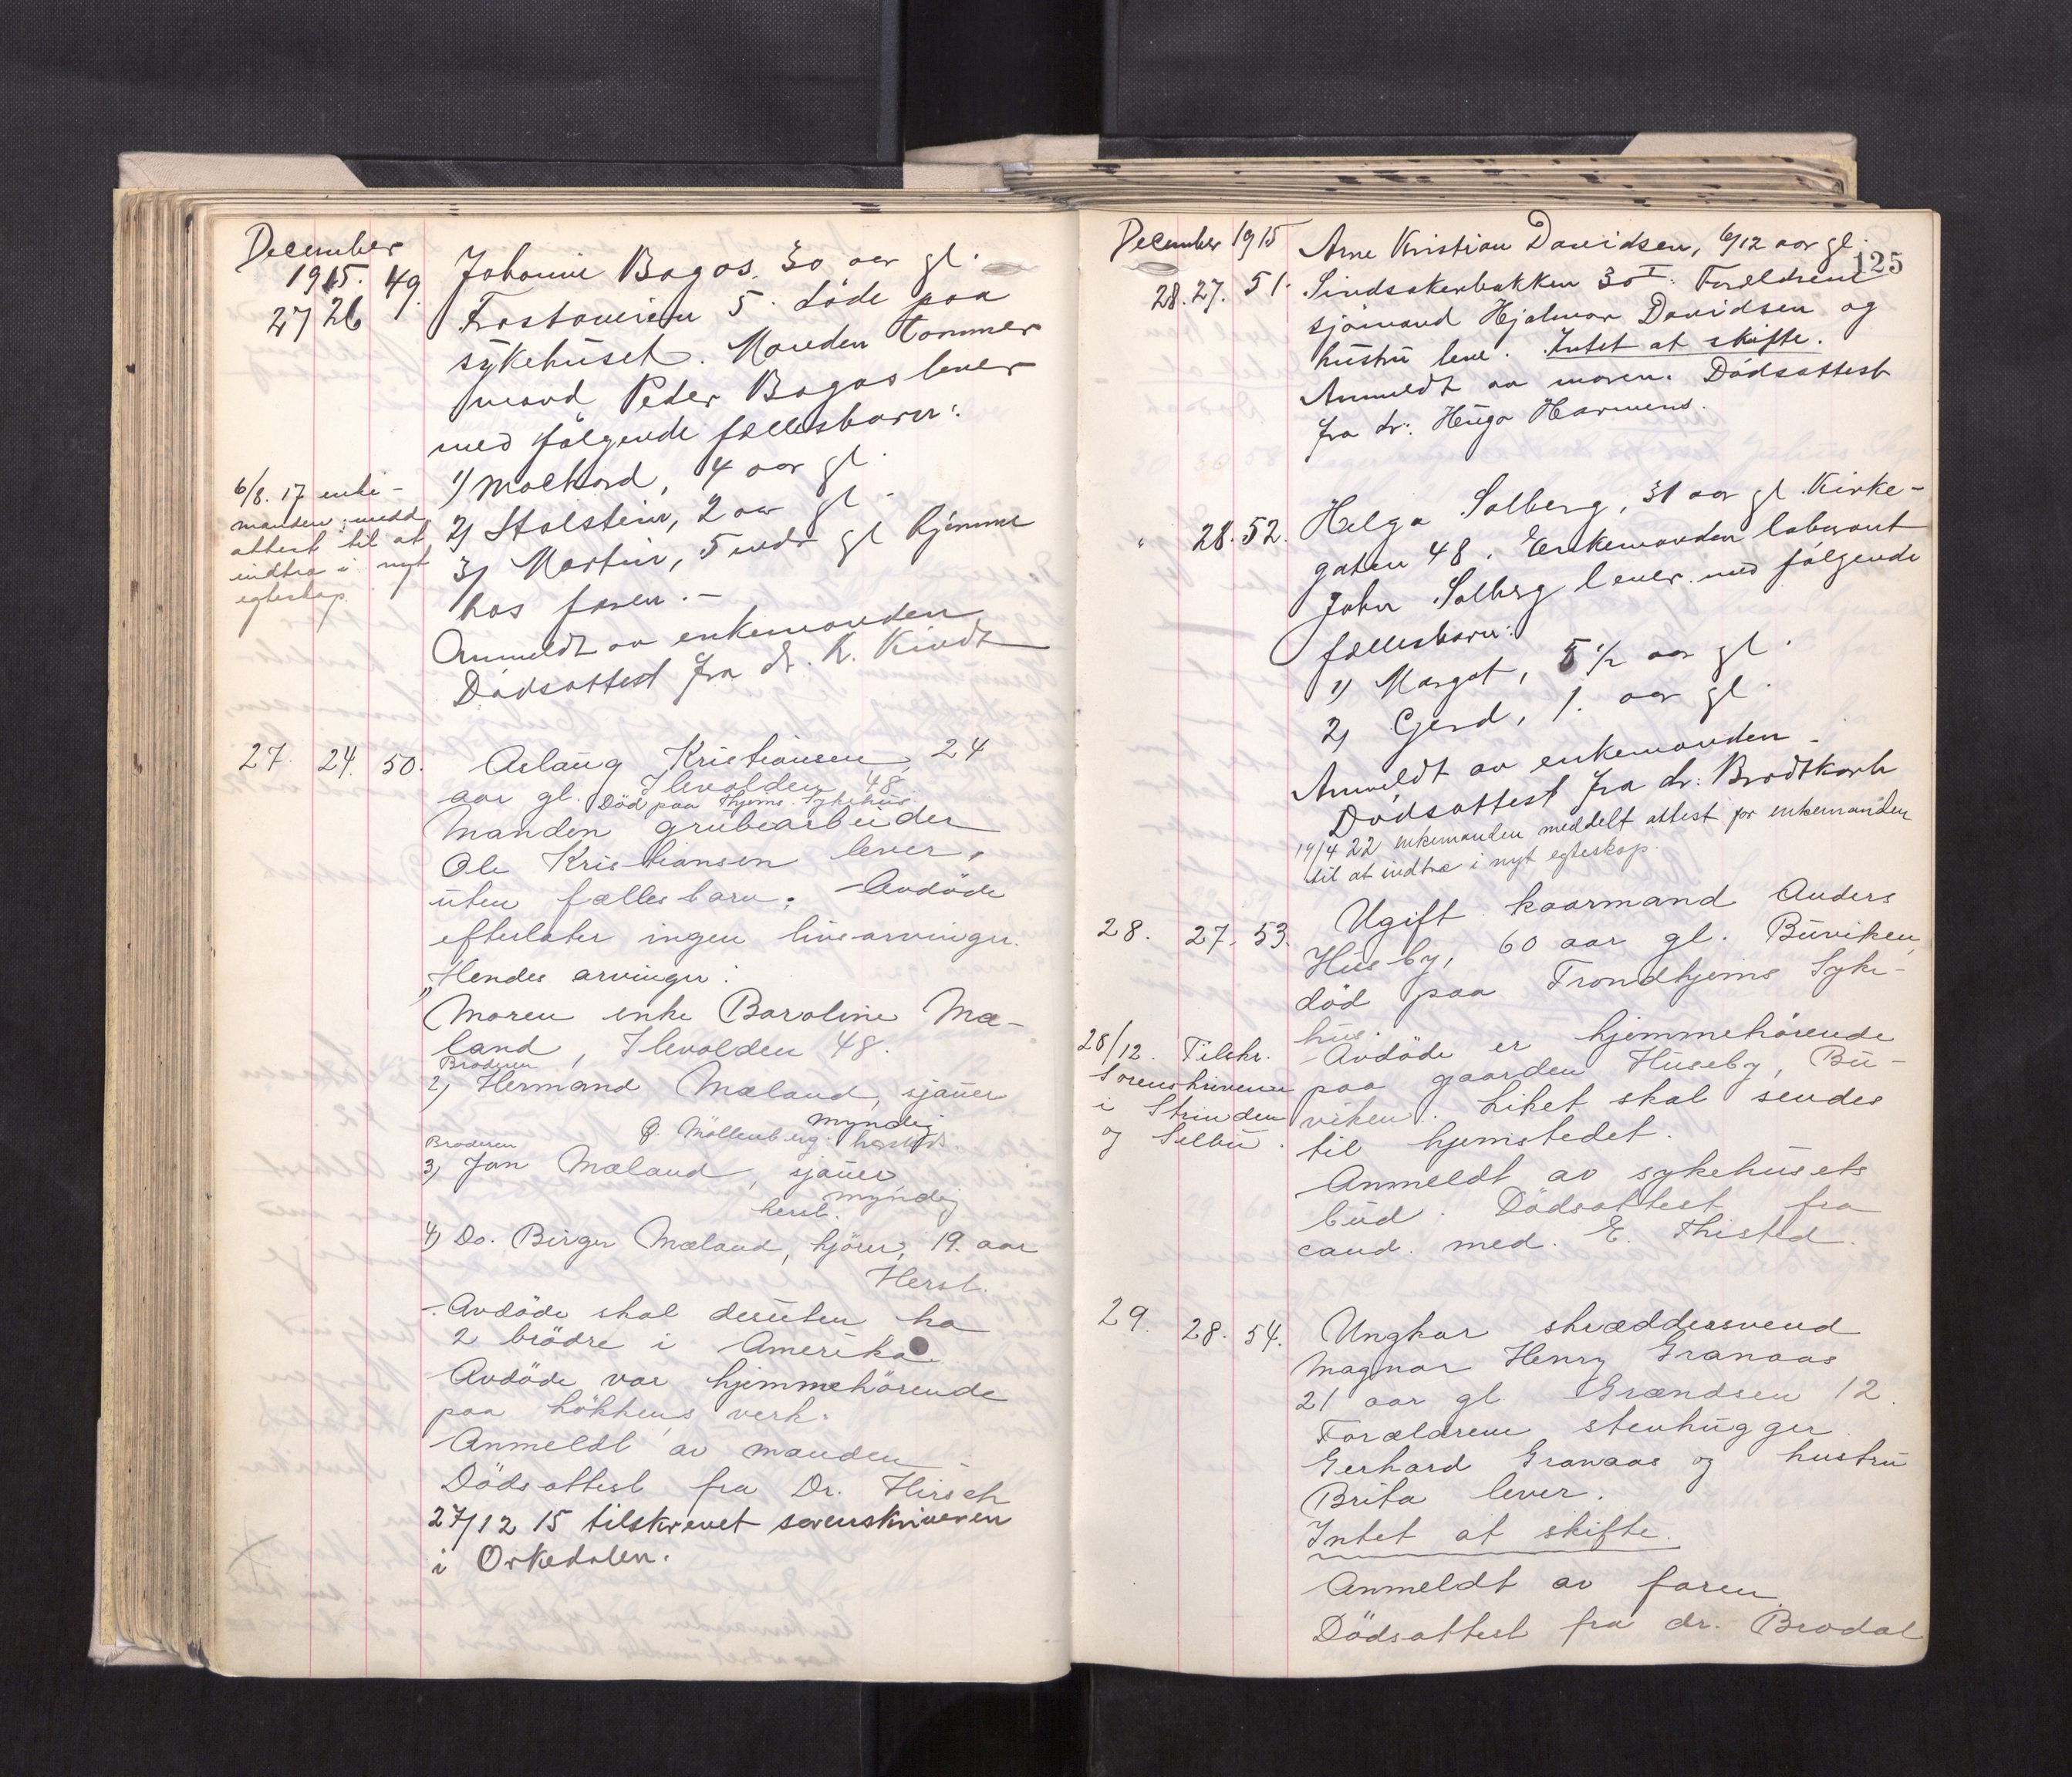 December
1915. 49. Johanne Bogos. 30 aar gl.
27 26 5. döde paa
sykehuset. Manden tömmer
mand Peder Bogos lever
med fölgende fællesbarn:
1) 4 aar gl.
2) 2 aar gl.
3) Martin, 5 mdr gl hjemme
hos faren. –
Anmeldt av enkemanden
Dödsattest fra dr. K. Kindt
6/8. 17 enke-
manden medd
attest til at
indtræ i nyt
egteskap.
27. 24. 50. Aslaug Kristiansen, 24
aar gl. Ilevolden 48
Död paa Thjems. Sykehus
Manden grubearbeider
Ole Kristiansen lever,
uten fællesbarn. Avdöde
efterlater ingen livsarvinger.
Hendes arvinger:
Moren enke Baroline Mæ-
land, Ilevolden 48.
Broderen
2) Hermand Mæland, sjauer
myndig
Möllenberg herst.
Broderen
3) Jon Mæland, sjauer
myndig
herst.
4) Do. Birger Mæland, kjörer, 19. aar
Herst.
Avdöde skal desuten ha
2 brödre i Amerika.
Avdöde var hjemmehörende
paa Lökkens verk.
Anmeldt av manden –
Dödsattest fra Dr. Hirsch
27/12 15 tilskrevet sorenskriveren
i Orkedalen.
December 1915 Arne Kristian Davidsen, 6/12 aar gl.
125
28. 27. 51. Sindsakerbakken 30 I. Forældrene
sjömand Hjalmar Davidsen og
hustru leve. Intet at skifte.
Anmeldt av moren. Dödsattest
fra dr. Hugo Harmens.
" 28. 52. Helga Solberg, 31 aar gl. Kirke-
gaten 48. Enkemanden laborant
John Solberg lever med fölgende
fællesbarn:
1) Margot, 5 1/2 aar gl.
2) Gerd, 1. aar gl.
Anmeldt av enkemanden –
Dödsattest fra dr: Brodtkorb
19/4 22 enkemanden meddelt attest for enkemanden
til at indtræ i nyt egteskap.
28. 27. 53. Ugift kaarmand Anders
Husby, 60 aar gl. Buviken,
död paa Trondhjems Syke-
hus.
Avdöde er hjemmehörende
paa gaarden Huseby, Bu-
viken. Liket skal sendes
til hjemstedet.
Anmeldt av sykehusets
bud. Dödsattest fra
cand. med. E. Thisted.
28/12. Tilskr.
Sorenskriveren
i Strinden
og Selbu.
29. 28. 54. Ungkar skræddersvend
Magnar Henry Granaas
21 aar gl. Grændsen 12.
Forældrene stenhugger
Gerhard Granaas og hustru
Brita lever.
Intet at skifte.
Anmeldt av faren
Dödsattest fra dr. Brodal